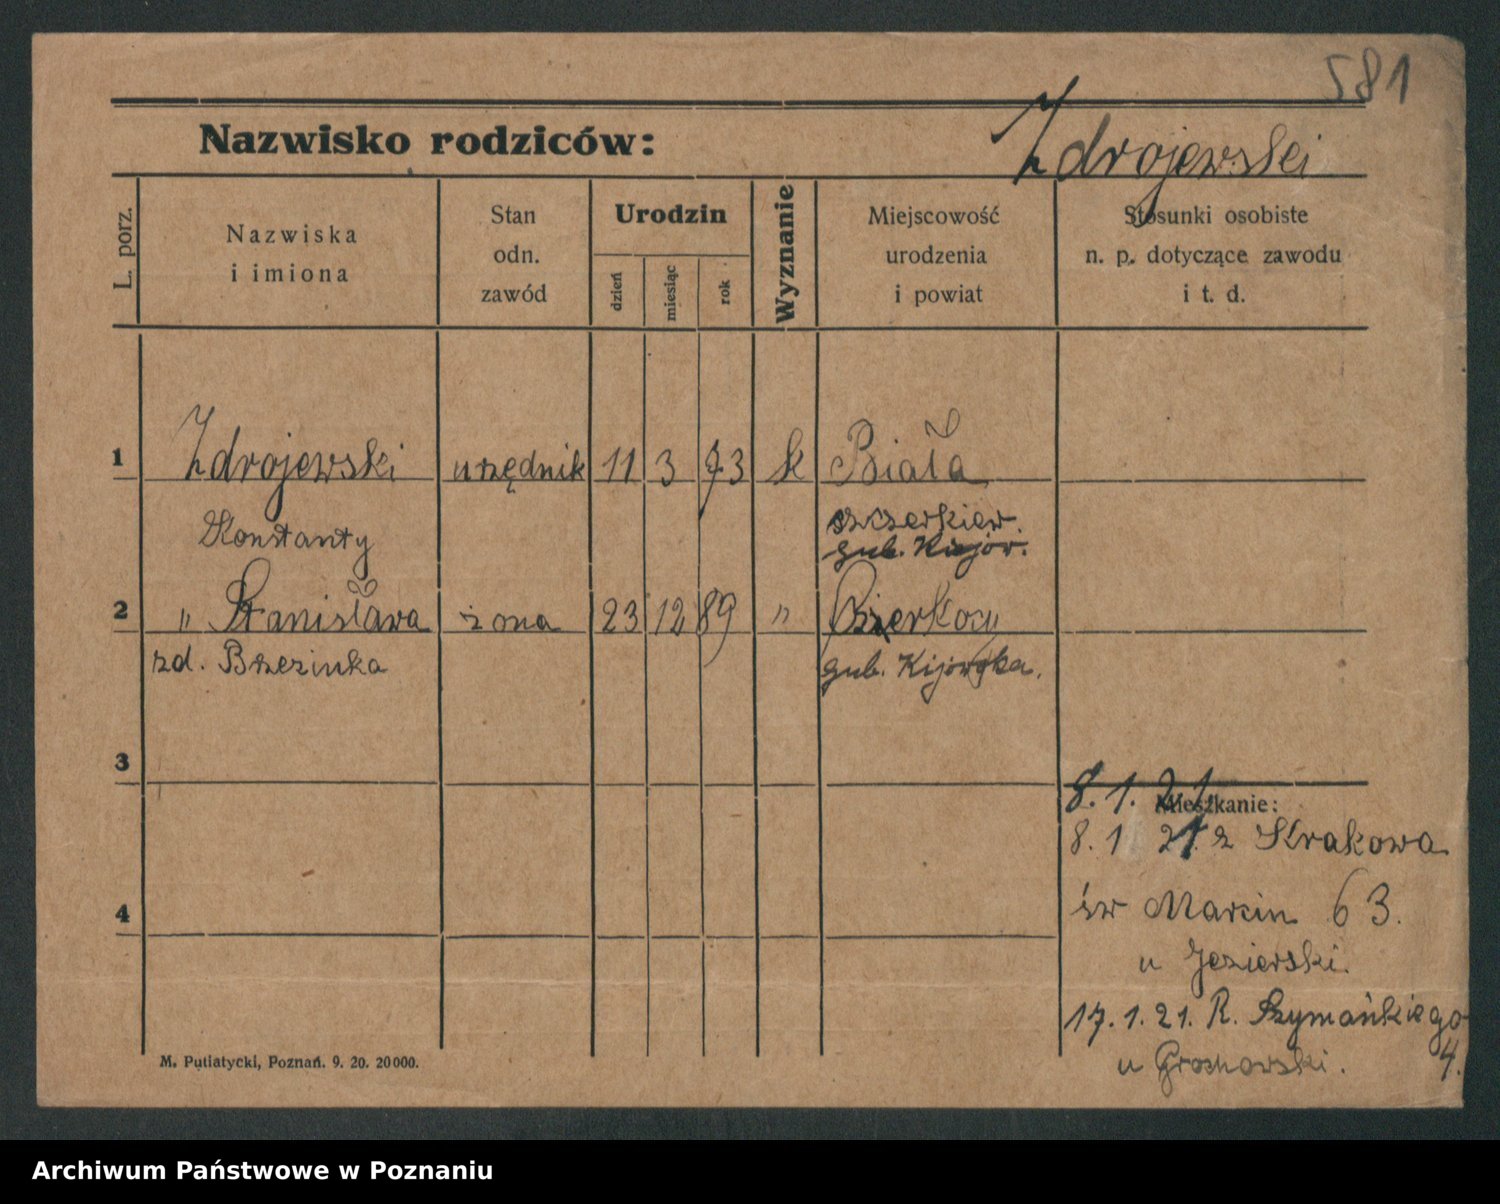 581
Nazwisko rodziców: Zdrojewski
L. porz.
Nazwiska
i imiona
Stan
odn.
zawód
Urodzin
dzień
miesiąc
rok
Wyznanie
Miejscowość
urodzenia
i powiat
Stosunki osobiste
n. p. dotyczące zawodu
i t. d.
1 Zdrojewski urzędnik 11 3 73 k Biała
Konstanty
gub. Kijow.
2 " Stanisława żona 23 12 89 "
zd. Brzezinka gub. Kijowska.
3
8.1.21.
Mieszkanie:
8.1 21. z Krakowa
4
św Marcin 63.
u Jezierski.
17.1.21. R. Szymańskiego
4.
u Grochowski.
M. Putiatycki, Poznań. 9. 20. 20000.
Archiwum Państwowe w Poznaniu